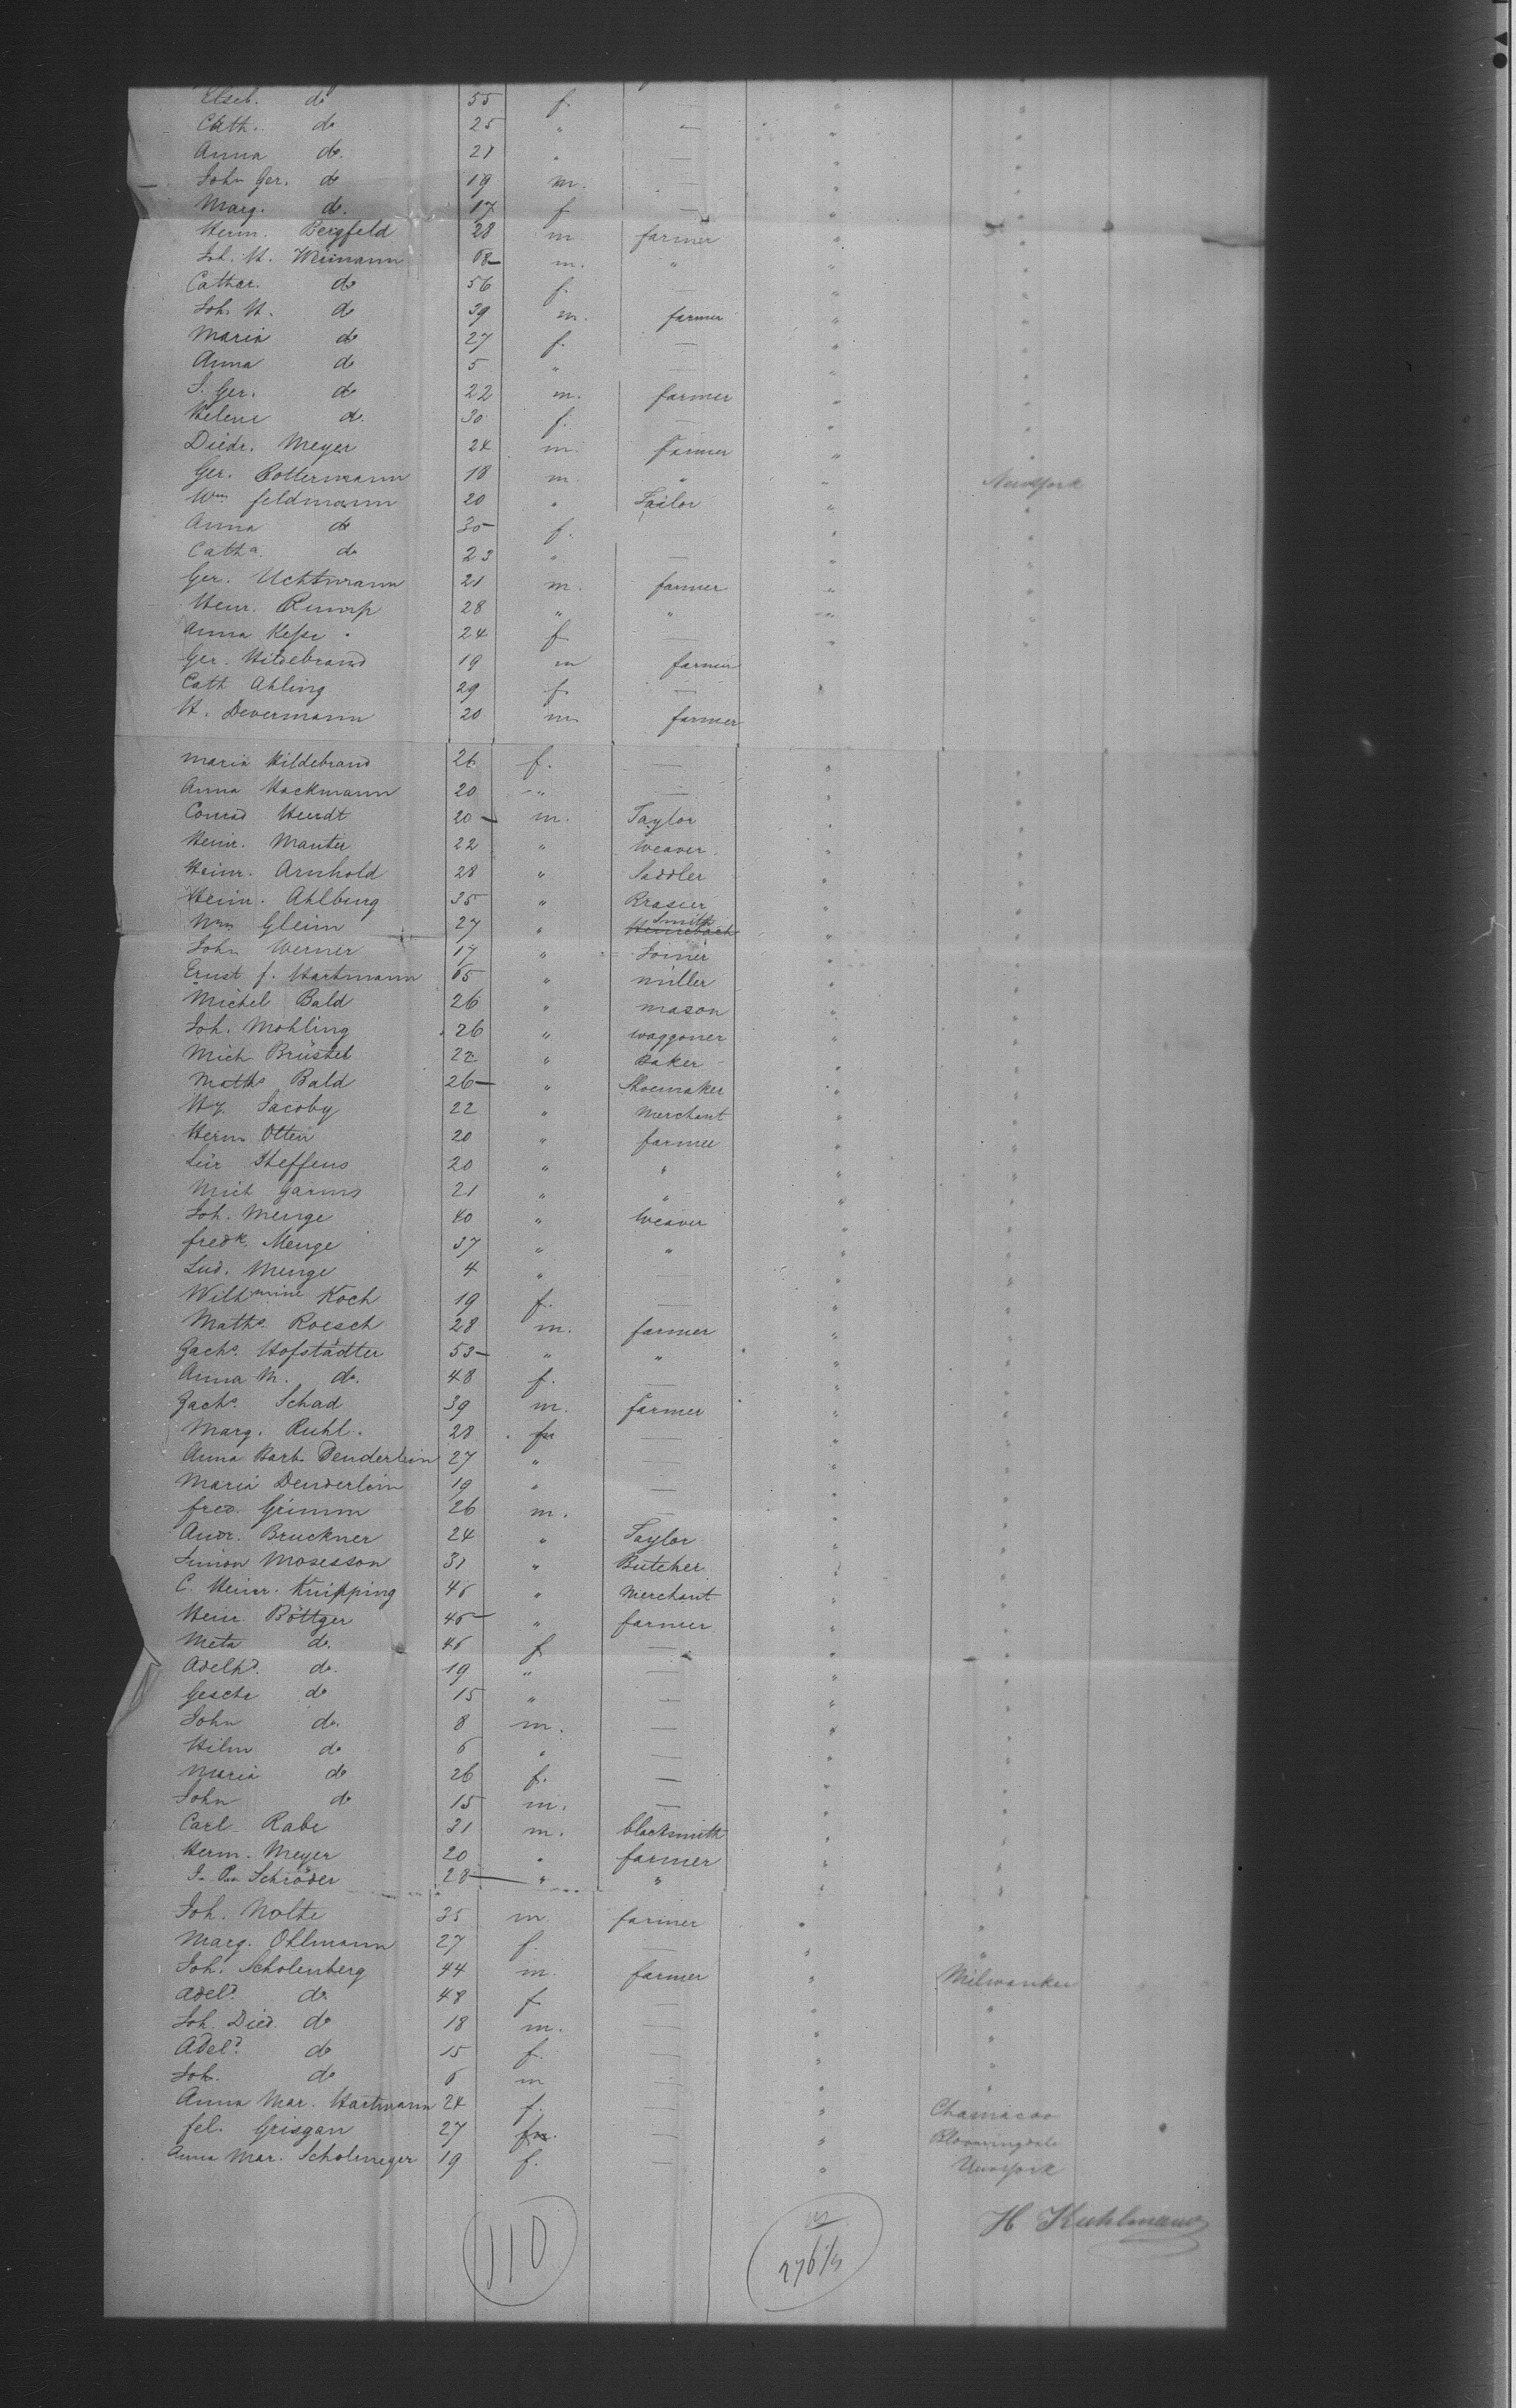 Elseb. do 55 f. — " "
Cath. do 25 " — " "
Anna do. 21 " — " "
Joh. Ger. do 19 m. — " "
Marg. do. 17 f — " "
Herm. Bergfeld 28 m farmer " "
Joh. H. Weimann m. " " "
Cathar. do 56 f. — " "
Joh. H. do 39 m. farmer " "
Maria do 27 f. — " "
Anna do 5 " — " "
J. Ger. do 22 m. farmer " "
Helene do. 30 f. — " "
Diedr. Meyer 24 m. farmer " "
Ger. 18 m. " " New York
Wm feldmann 20 " Tailor " "
Anna do 30 f. " "
Catha. do 23 " — " "
Ger. Uchtmann 21 m. farmer " "
Heinr. 28 " " " "
Anna 24 f — " "
Ger. Hildebrand 19 m farmer
Cath Ahling 29 f. — "
H. Devermann 20 m farmer
Maria Hildebrand 26 f. — " "
Anna Hackmann 20 " — " "
Conrad 20 — m. Taylor " "
Heinr. Manter 22 " Weaver " "
Heinr. Arnhold 28 " Saddler " "
Heinr. Ahlburg 35 " Brasier " "
Wm Gleim 27 " Smith " "
John Werner 17 " Joiner " "
Ernst f. Hartmann 65 " miller " "
Michel Bald 26 " mason " "
Joh. Mohling 26 " waggoner " "
Mich Brüstel 22 " Baker " "
Maths Bald 26 — " Shoemaker " "
Hy. Jacoby 22 " Merchant " "
Herm Otten 20 " farmer " "
Lür Steffens 20 " " " "
Mich Garms 21 " " " "
Joh. Menge 40 " Weaver " "
fredk. Menge 37 " " " "
Lud. Menge 4 " — " "
Wilhmine Koch 19 f. — " "
Maths. Roesch 28 m. farmer " "
Zachs. Hofstädter 53 — " " " "
Anna M. do. 48 f. — " "
Zachs. Schad 39 m. farmer " "
Marg. Ruhl. 28 f — " "
Anna Barb. Denderlein 27 " — " "
Maria Denderlein 19 " — " "
fred. Grimm 26 m. — " "
Andr. Bruckner 24 " Taylor " "
Simon Mosesson 31 " Butcher " "
C. Heinr. Knipping 45 " Merchant " "
Heinr. Böttger 45 — " farmer " "
Meta do. 45 f — " "
Adelhd. do. 19 " — " "
Gesche do 15 " — " "
John do. 8 m. — " "
Hilm do 6 " — " "
Maria do 26 f. — " "
John do 15 m. — " "
Carl Rabe 31 m. blacksmith " "
Herm. Meyer 20 " farmer " "
Schröder 28 — " " " "
Joh. Nolte 35 m. farmer " "
Marg. Ohlmann 27 f. — " "
Joh. Scholenberg 44 m. farmer " Milwaukee
Adeld. do 48 f — " "
Joh. Died. do 18 m. — " "
Adeld. do 15 f. — " "
Joh. do 6 m — " "
Anna Mar. Hartmann 24 f. — "
fel. Grisgan 27 f — " Bloomingdale
Anna Mar. Scholmeyer 19 f. — " New York
H Kuhlmann
110